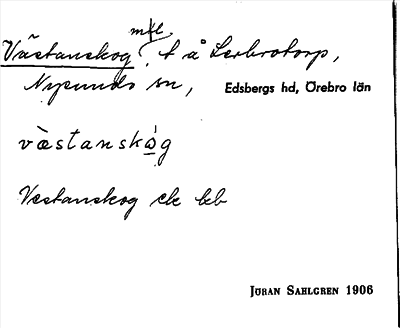 mtl
Västanskog, t å Lerbrotorp,
Nysunds sn, Edsbergs hd, Örebro län
væ̀stanskóg
Vestanskog
JÖRAN SAHLGREN 1906